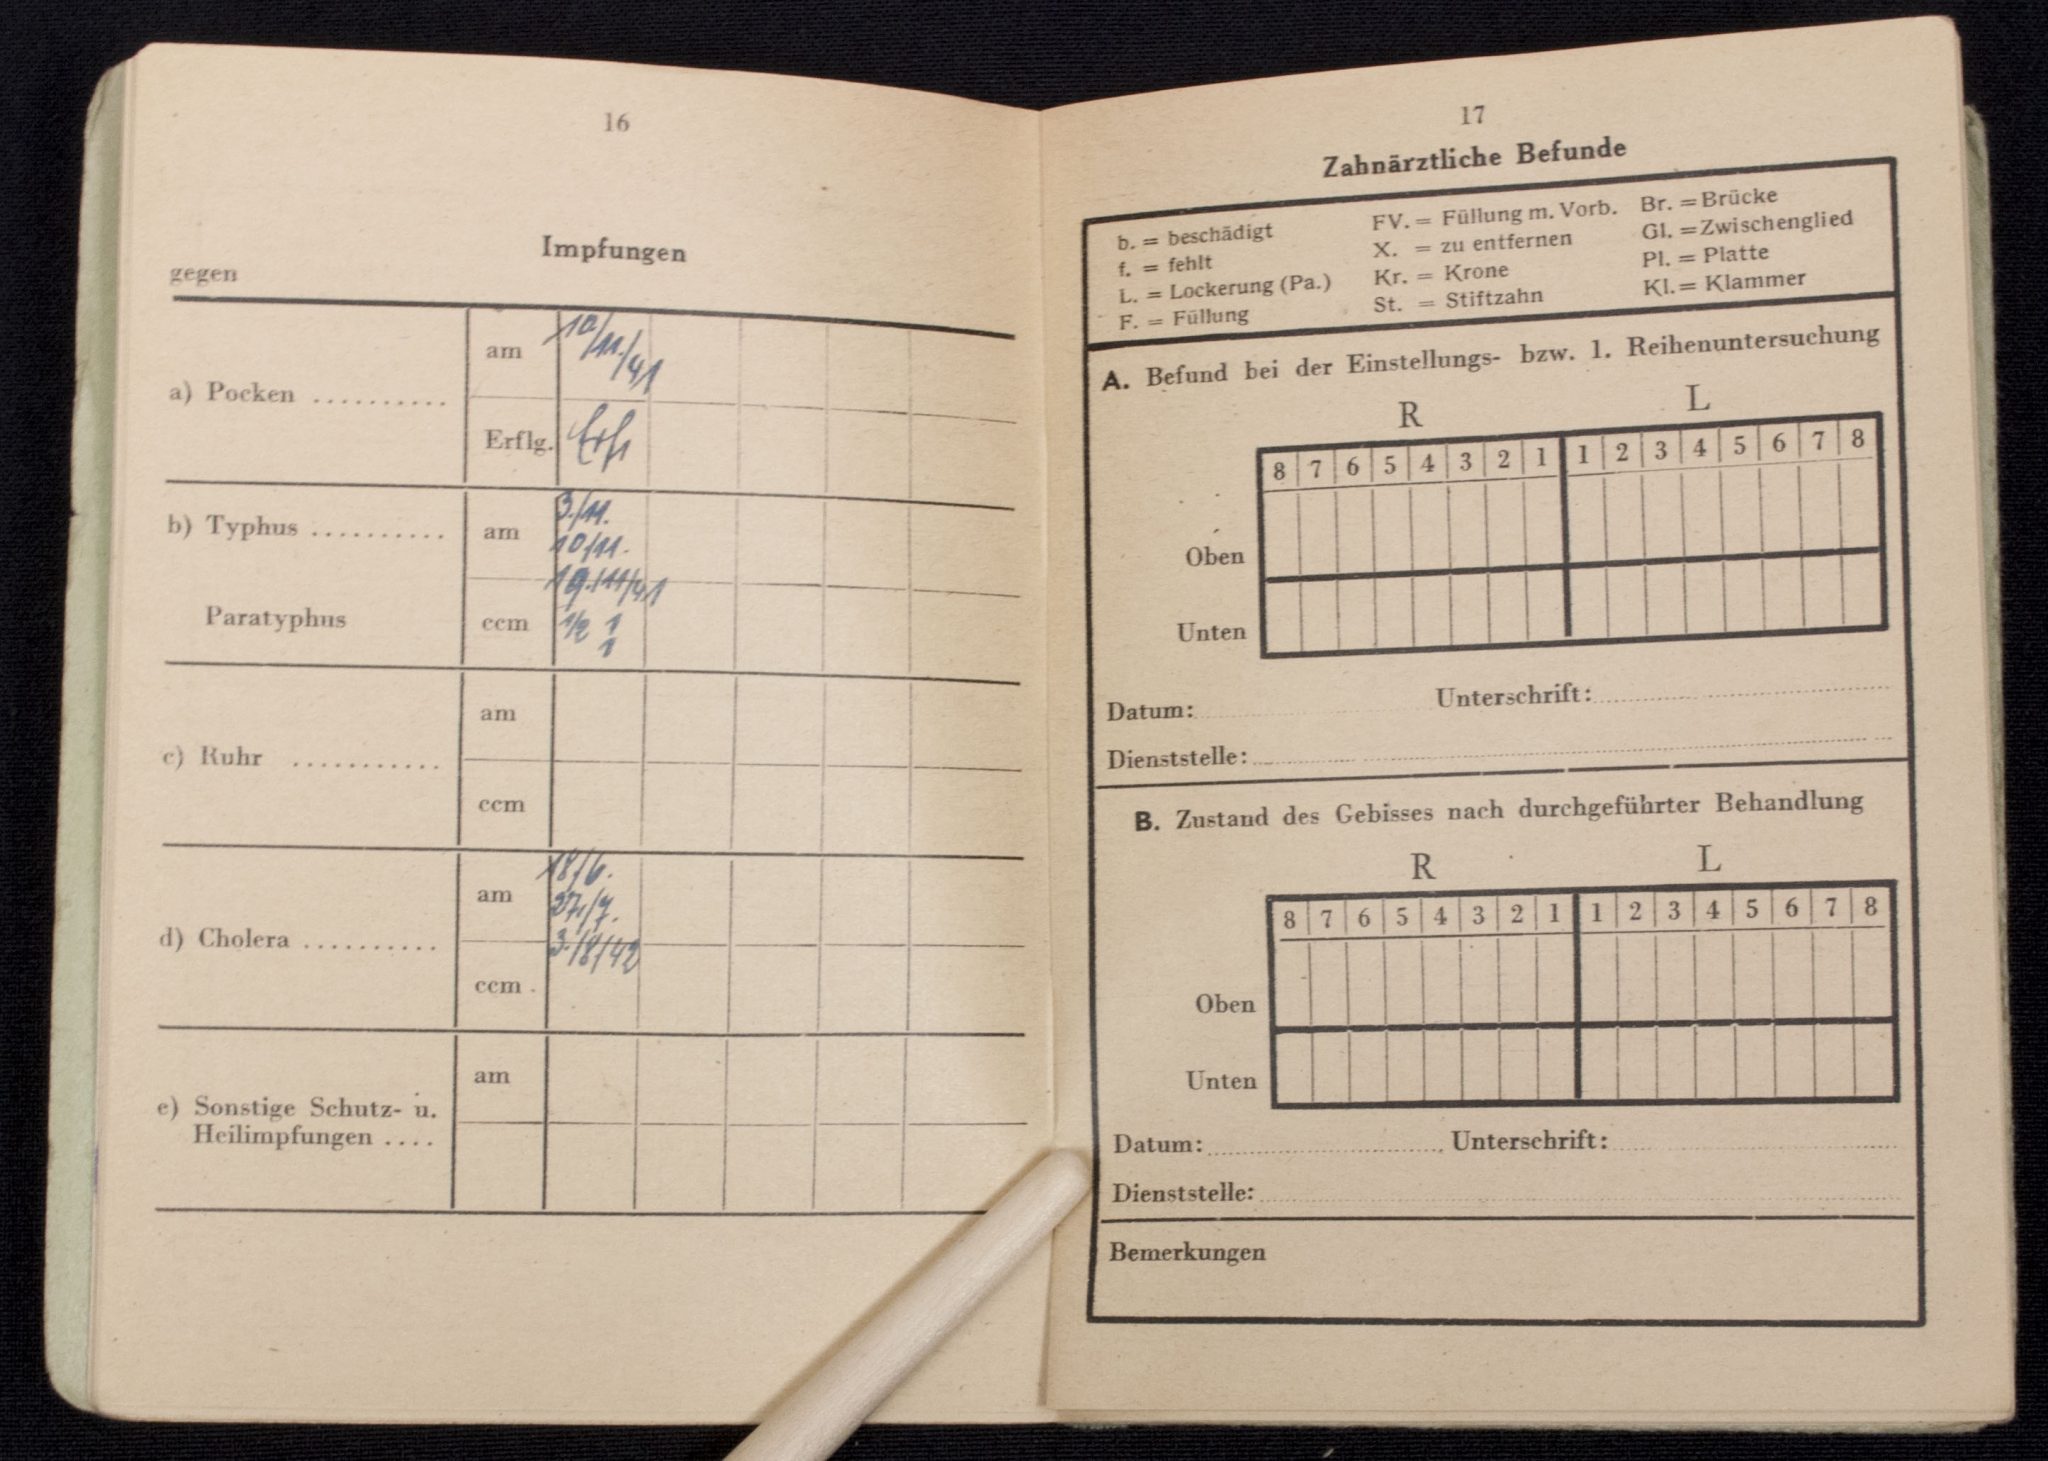 16
Impfungen
gegen
a) Pocken ..........
am
10/11./41
Erflg.
Erf.
b) Typhus ..........
am
3./11.
10/11.
19./11/41
Paratyphus
ccm
1/2 1
1
c) Ruhr ...........
am
ccm
d) Cholera ..........
am
18/6.
27./7.
3./8/42
ccm
e) Sonstige Schutz- u.
Heilimpfungen ....
am
17
Zahnärztliche Befunde
b. = beschädigt
f. = fehlt
L. = Lockerung (Pa.)
F. = Füllung
FV. = Füllung m. Vorb.
X. = zu entfernen
Kr. = Krone
St. = Stiftzahn
Br. = Brücke
Gl. = Zwischenglied
Pl. = Platte
Kl. = Klammer
A. Befund bei der Einstellungs- bzw. 1. Reihenuntersuchung
R L
8 7 6 5 4 3 2 1 1 2 3 4 5 6 7 8
Oben
Unten
Datum: Unterschrift:
Dienststelle:
B. Zustand des Gebisses nach durchgeführter Behandlung
R L
8 7 6 5 4 3 2 1 1 2 3 4 5 6 7 8
Oben
Unten
Datum: Unterschrift:
Dienststelle:
Bemerkungen